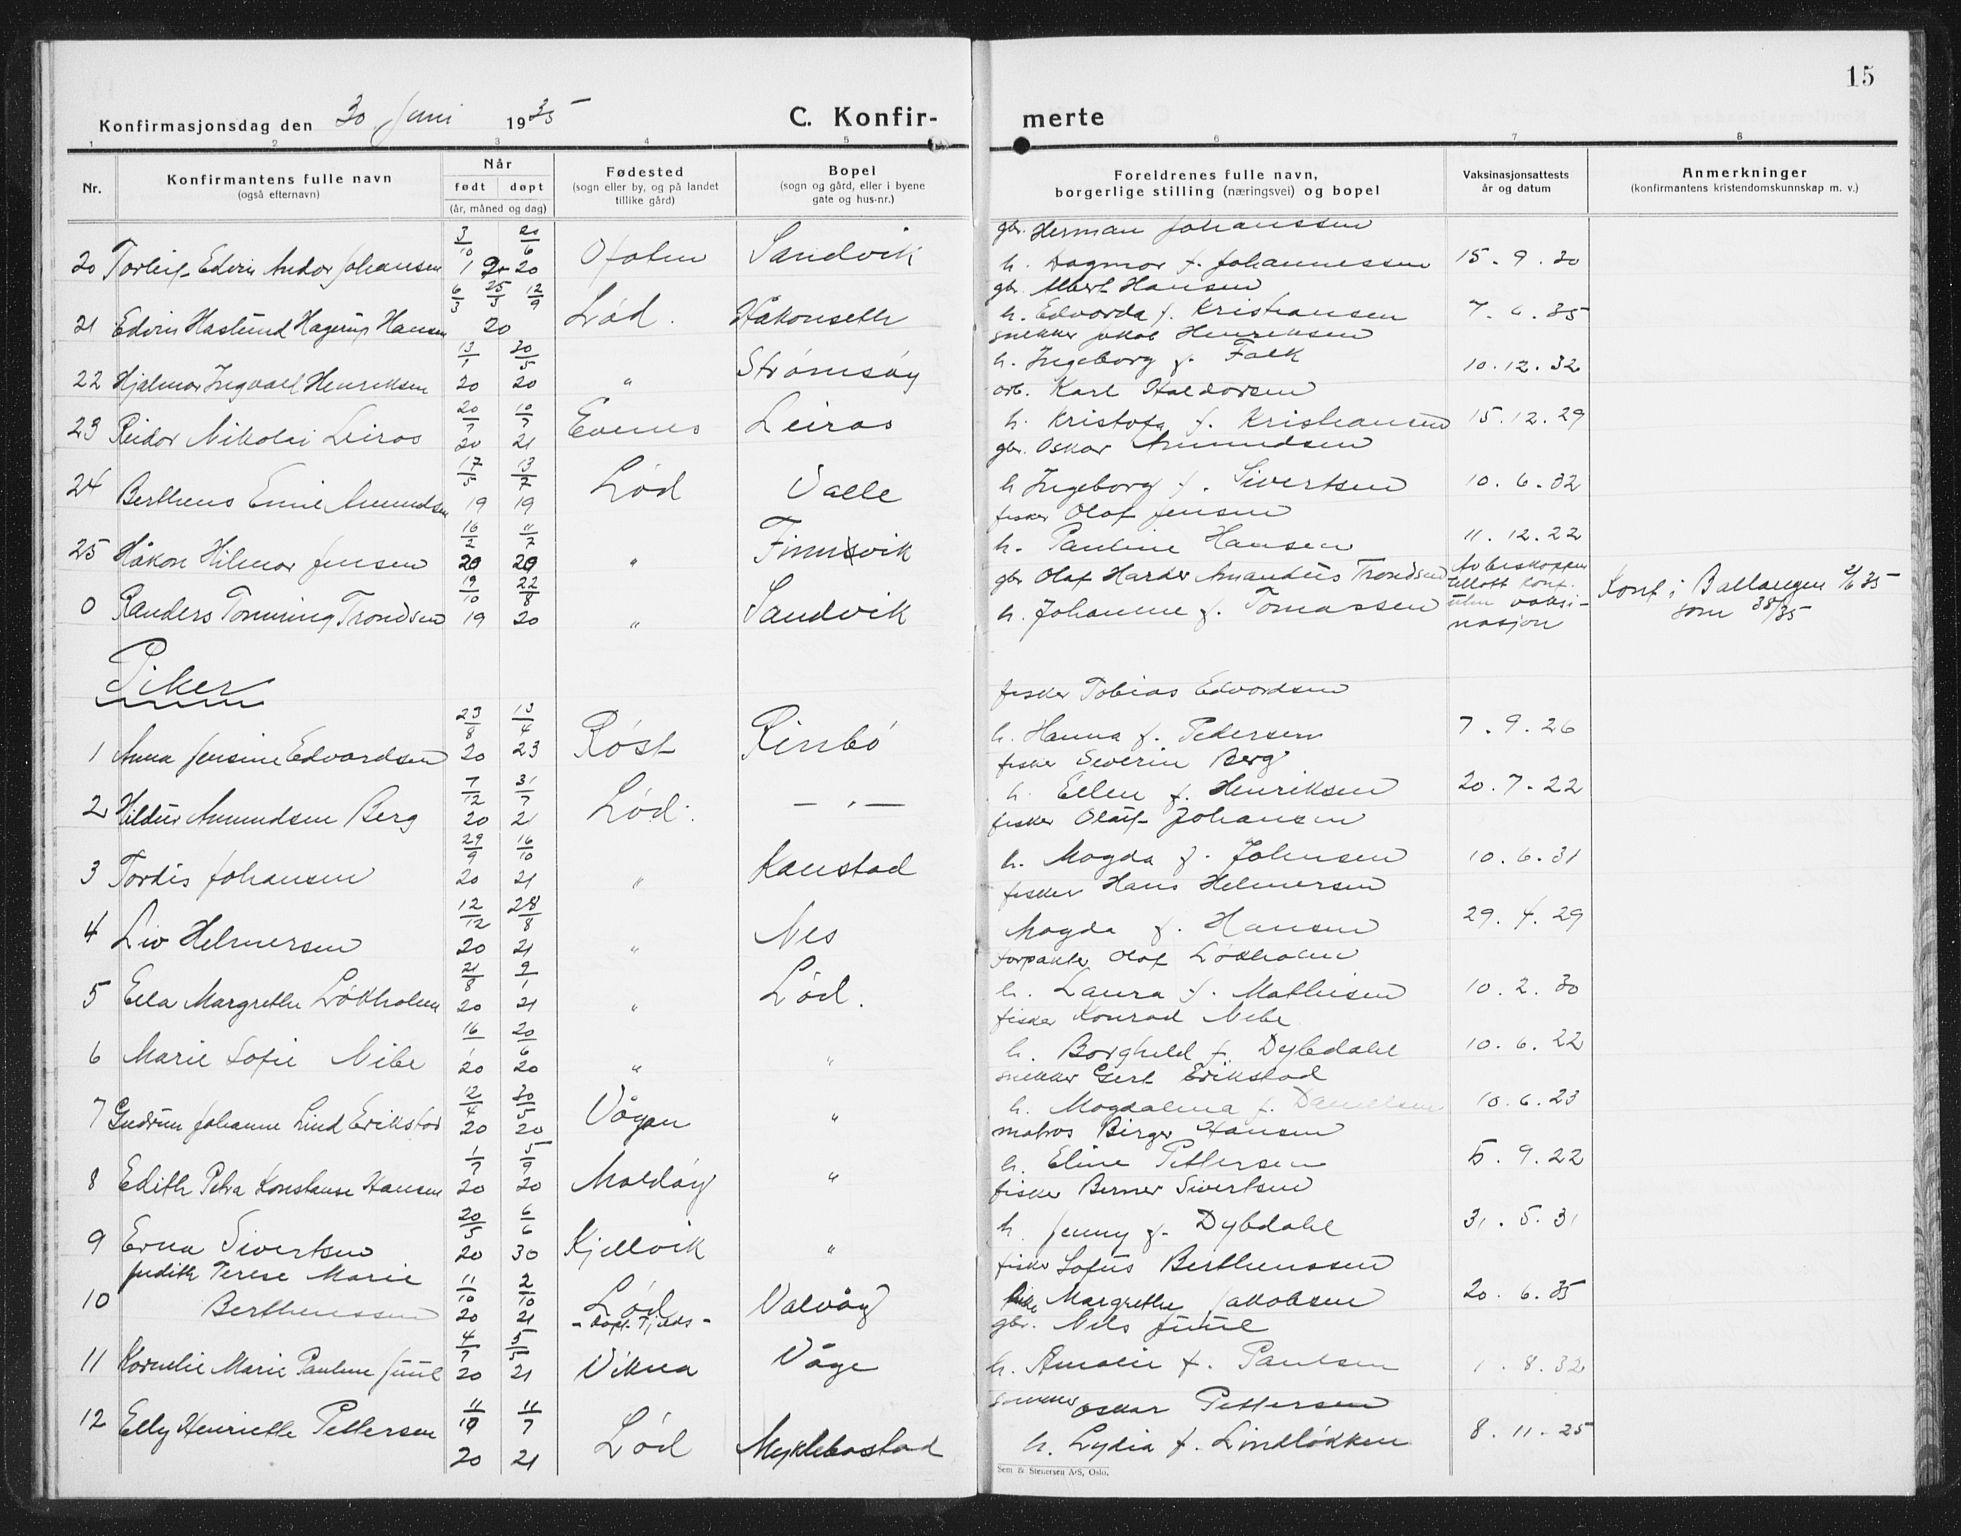 15
Konfirmasjonsdag den 30 Juni 1935
C. Konfir-
merte
1 2 3 4 5 6 7 8
Nr.
Konfirmantens fulle navn
(også efternavn)
Når
født døpt
(år, måned og dag)
Fødested
(sogn eller by, og på landet
tillike gård)
Bopel
(sogn og gård, eller i byene
gate og hus-nr.)
Foreldrenes fulle navn,
borgerlige stilling (næringsvei) og bopel
Vaksinasjonsattests
år og datum
Anmerkninger
(konfirmantens kristendomskunnskap m. v.)
gbr. Herman Johanssen
20 Torleif Edvin Andor Johansen Ofoten Sandvik h. Dagmar f. Johannessen 15.9.20
gbr. Albert Hansen
21 Edvin Haslund Hagerup Hansen 20 Lød. Håkonseth h. Edvarda f. Kristiansen 7.6.35
snekker Jakob Henriksen
13/1 20/5
22 Hjalmar Ingvald Henriksen 20 20 " Strømsøy h. Ingeborg f. Falk 10.12.32
arb. Karl Haldorsen
20/7 10/7
23 Reidar Nikolai Leiros 20 21 Evenes Leiros h. Kristofa f. Kristiansen 15.12.29
gbr. Oskar Amundsen
17/5 13/7
24 Berthens Emil Amundsen 19 19 Lød Valle h Ingeborg f. Sivertsen 10.6.32
fisker Olaf Jensen
16/2 11/7
25 Håkon Hilmar Jensen 20 20 " Finnvik h. Pauline Hansen 11.12.22
gbr Olaf Harder Amandus Trondsen Av biskoppen
19/10 22/8
0 Randers Tonning Trondsen 19 20 " Sandvik h. Johanne f. Tomassen tillatt konf. uten vaksi-
nasjon
Konf i Ballangen 2/6 35
som 38/35
Piker
fisker Tobias Edvardsen
23/8 13/4
1 Anna Jensine Edvardsen 20 23 Røst Rinbø h. Hanna f. Pedersen 7.9.26
fisker Severin Berg
7/12 31/7
2 Hildur Amundsen Berg 20 21 Lød. — " — h. Ellen f. Henriksen 20.7.22
fisker Olaus Johansen
29/9 16/10
3 Tordis Johansen 20 21 " Kanstad h. Magda f. Johnsen 10.6.31
fisker Hans Helmersen
12/12 28/8
4 Liv Helmersen 20 21 " Nes Magda f. Hansen 29.4.29
forpakter Olaf Løkholm
21/8 9/1
5 Ella Margrethe Løkholm 20 21 " Lød. h. Laura f. Mathisen 10.2.30
fisker Konrad Nibe
16/1 20/6
6 Marie Sofie Nibe 20 20 " " h. Borghild f. Dybdahl 10.6.22
snekker Gert Erikstad
12/4 30/5
7 Gudrun Johanne Lind Erikstad 20 20 Vågan " h. Magdalena f. Danielsen 10.6.23
matros Birger Hansen
1/7 5/9
8 Edith Petra Konstanse Hansen 20 20 Maldøy " h. Eline Pettersen 5.9.22
fisker Berner Sivertsen
20/5 6/6
9 Erna Sivertsen 20 30 Kjellvik " h. Jenny f. Dybdahl 31.5.31
fisker Sofus Berthenssen
Judith Terese Marie 11/10 2/10
10 Berthenssen 20 21 Lød Valvåg Margrethe Jakobsen 20.6.35
- døpt Fjelds -
gbr. Nils Juul
4/7 5/5
11 Kornelie Marie Pauline Juul 20 21 Vikna Våge h. Amalie f. Paulsen 1.8.32
snekker Oskar Pettersen
11/10 11/7
12 Elly Henriette Pettersen 20 21 Lød Myklebostad h. Lydia f. Lindbækken 8.11.25
Sem & Stenersen A/S, Oslo.